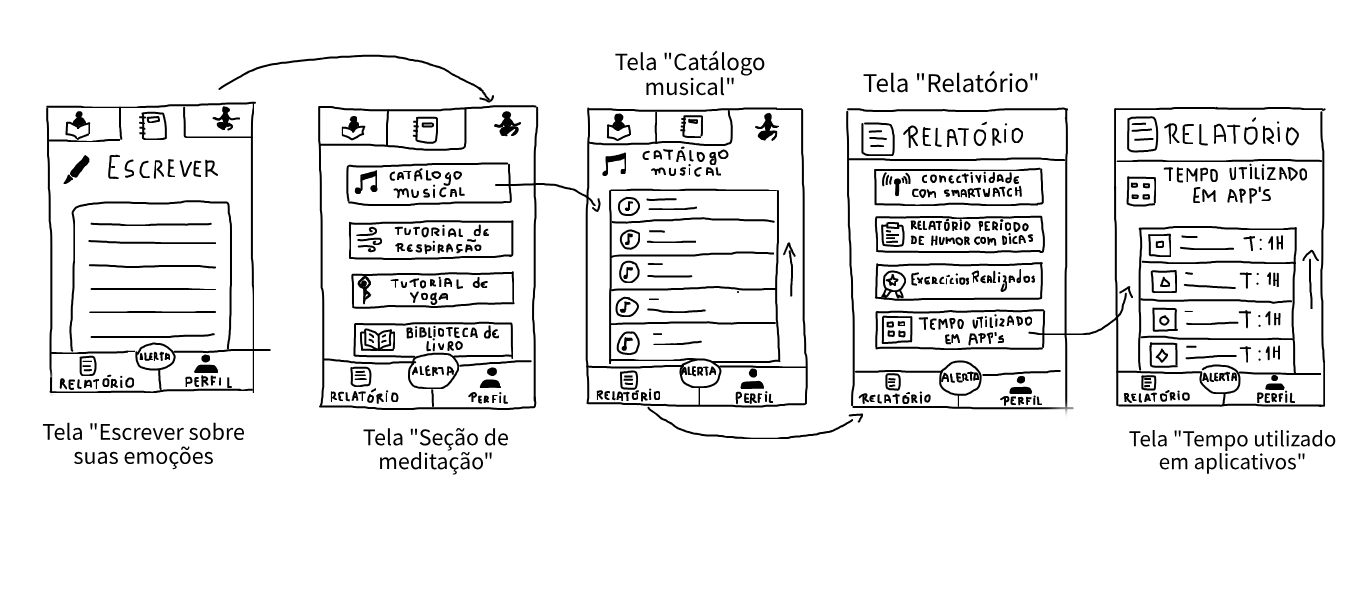 ESCREVER
ALERTA
RELATÓRIO
PERFIL
Tela "Escrever sobre
suas emoções
CATÁLOGO
MUSICAL
TUTORIAL de
RESPIRAÇÃO
TUTORIAL de
YOGA
BIBLIOTECA de
LIVRO
ALERTA
RELATÓRIO
PERFIL
Tela "Seção de
meditação"
Tela "Catálogo
musical"
CATÁLOGO
MUSICAL
ALERTA
RELATÓRIO
PERFIL
Tela "Relatório"
RELATÓRIO
CONECTIVIDADE
COM SMARTWATCH
RELATÓRIO PERÍODO
DE HUMOR COM DICAS
EXERCÍCIOS REALIZADOS
TEMPO UTILIZADO
EM APP'S
ALERTA
RELATÓRIO
PERFIL
RELATÓRIO
TEMPO UTILIZADO
EM APP'S
T:1H
T:1H
T:1H
T:1H
ALERTA
RELATÓRIO
PERFIL
Tela "Tempo utilizado
em aplicativos"